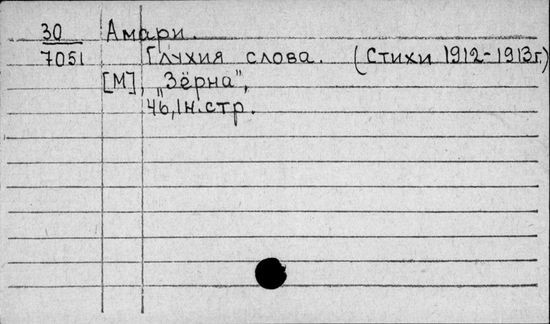 30 Амари.
7051 Глухия слова. (Стихи 1912-1913г.)
[М], „Зёрна",
46,1н.стр.